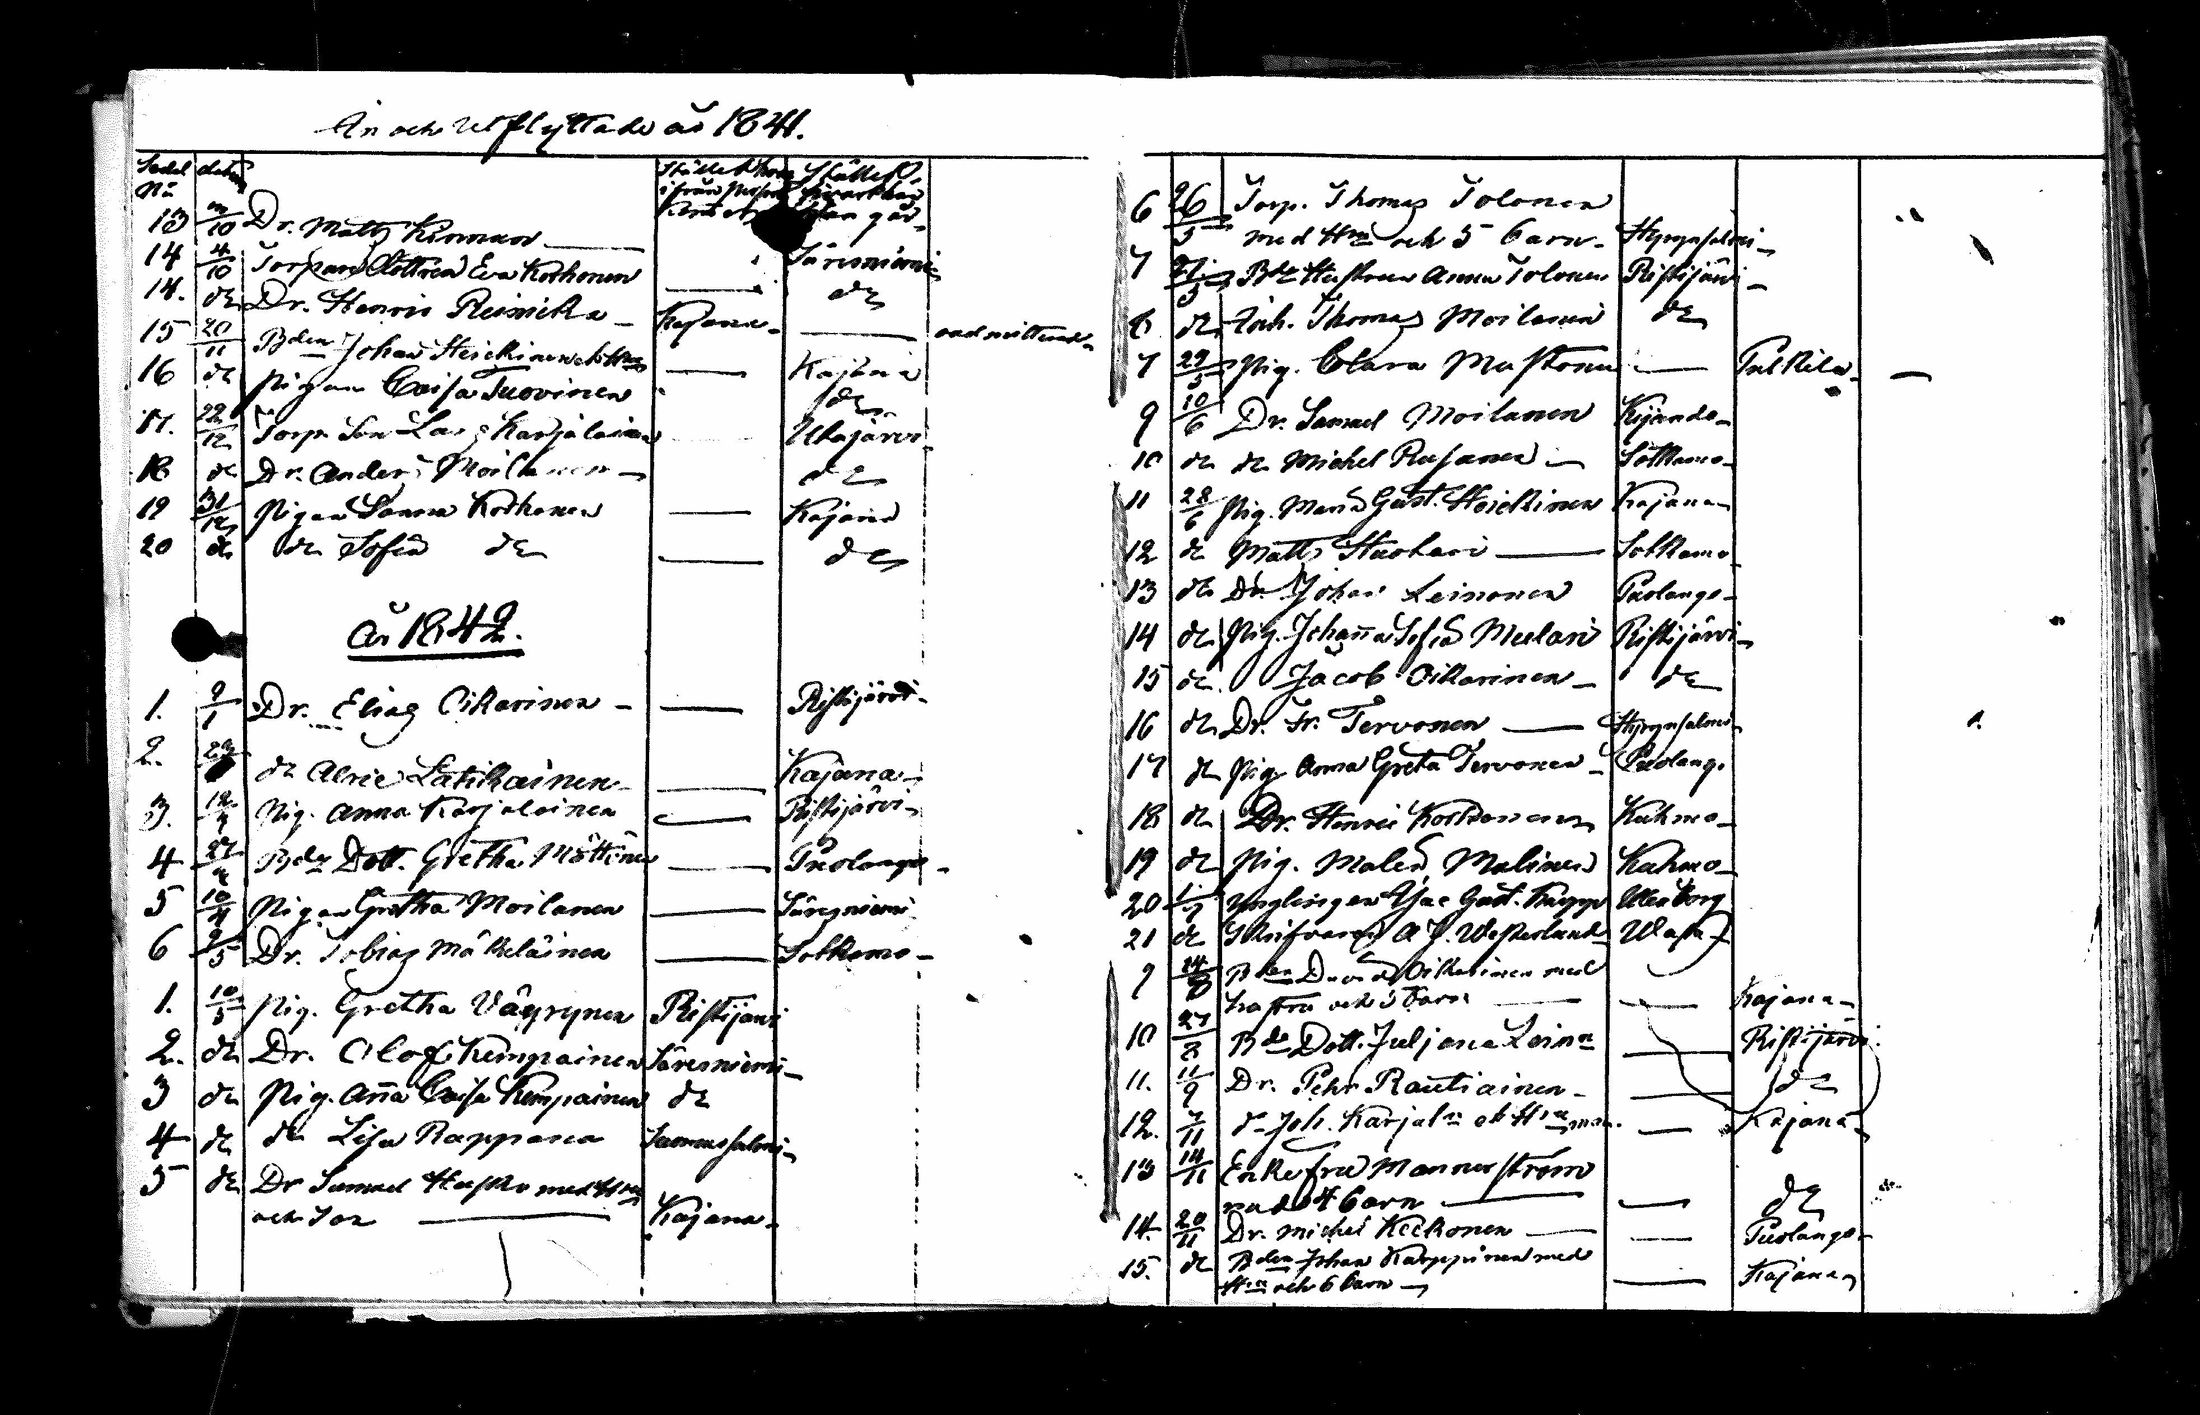 In och Utflyttade år 1841.
Sedel No datum Stället hvar ifrån Stället
13 10 Dr. Matts Kinnunen —
14 4/10 Torpare Dottren Eva Korhonen — Säresniemi
14. do Dr. Henric Kajana — do
15 20/11 Bden Johan Heickinen — Kajana
16 do Pigan Caisa Tuovinen do
17. 22/12 Torp. Son Lars Karjalainen Utajärvi
18 do Dr. Anders Moilanen — do
19 31/12 Pigan Sanna Korhonen — Kajana
20 do do Sofia do — do
år 1842.
1. 9/1 Dr. Elias Oikarinen — — Ristijärvi
2. do Alric Latikainen — Kajana
3. Pig. Anna Karjalainen — Ristijärvi
4 Bde Dott. Gretha Möttönen — Puolango
5 10/4 Pigan Gretha Moilanen — Säresniemi
6 9/5 Dr. Tobias Mätteläinen — Sotkamo
1. 10/5 Pig. Gretha Väyrynen Ristijärvi
2. do Dr. Olof Kempainen Säresniemi
3 do Pig. Anna Caisa Kempainen do
4 do do Lisa Rappana Suomussalmi
5 do Dr Samuel Husko med Hu
och Son — Kajana
6 26/5 Torp. Thomas Tolonen
med Hu och 5 barn — Hyrynsalmi
7 27/5 Bde Hustrun Anna Tolonen Ristijärvi
8 do Inh. Thomas Moilanen do
7 29/5 Pig. Clara Mustonen — Pulkila
9 10/6 Dr. Samuel Moilanen Kijando
10 do do Michel Rusanen — Sotkamo
11 28/6 Pig. Maria Gust. Heickinen Kajana
12 do Matts Huohari — Sotkamo
13 do Dr. Johan Leinonen Puolango
14 do Pig. Johanna Sofia Mulari Ristijärvi
15 do Jacob Oikarinen — do
16 do Dr. Fr. Tervonen — Hyrynsalmi
17 do Pig Anna Greta Tervonen — Puolango
18 do Dr. Henric Korhonen Kuhmo
19 do Pig. Malen Malinen Kuhmo
20 1/7 Ynglingen Isac Gust. Uleåborg
21 do Skrifvaren A. J. Westerlund Wasa
9 14/8 Bden David Oikarinen med
hustru och 3 barn — — Kajana
10 27/8 Bde Dott. Juljana Lein — Ristijärvi
11. 11/9 Dr. Pehr Rautiainen — do
12. 7/11 do Joh. Karjaln et Hu — Kajana
13 14/11 Enkefru Mannerström
med 4 barn — — do
14 20/11 Dr. Michel Keckonen — — Puolango
15. do Bden Johan Karppinen med
Hu och 6 barn — — Kajana